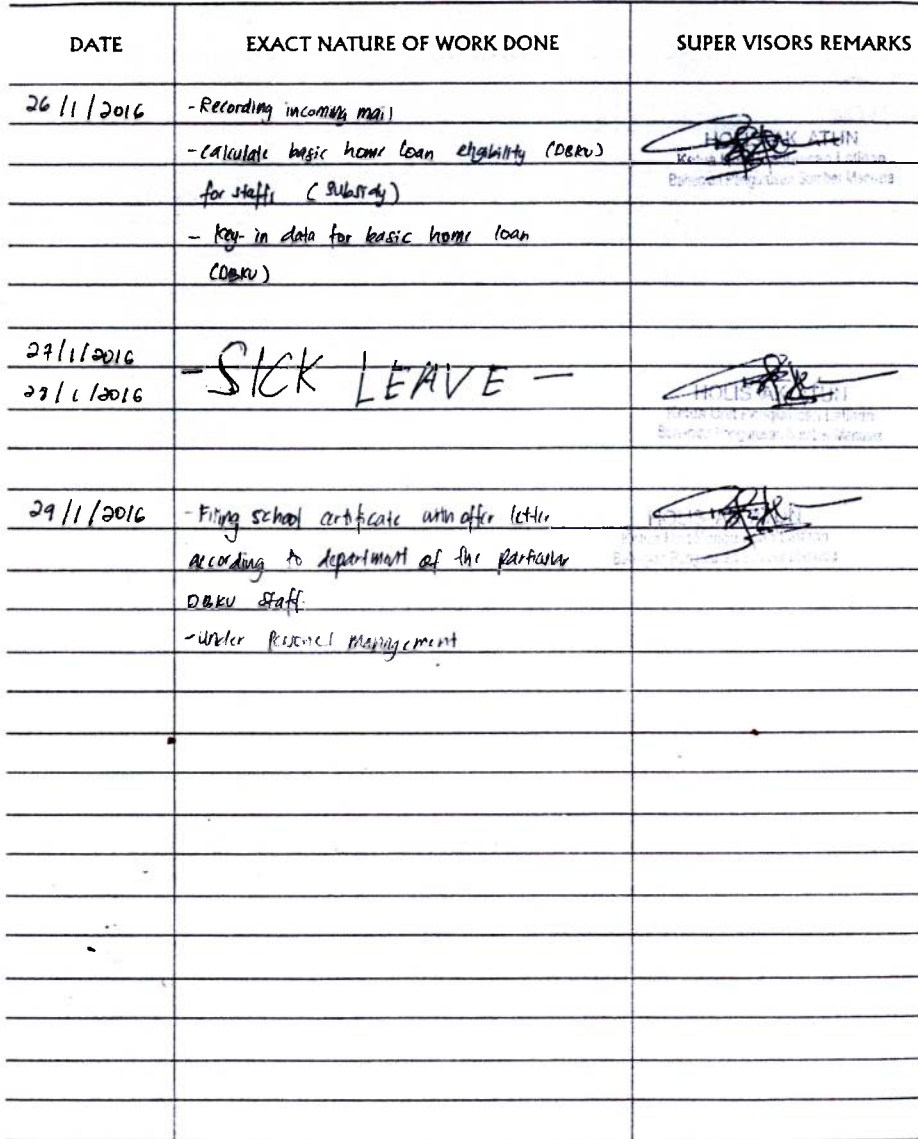 DATE EXACT NATURE OF WORK DONE SUPER VISORS REMARKS
26/1/2016 - Recording incoming mail
- calculate basic home loan eligibility (DBKU)
for staffs (subsidy)
- Key-in data for basic home loan
(DBKU)
HOLIS AK ATUN
27/1/2016
- SICK LEAVE -
28/1/2016
HOLIS AK ATUN
29/1/2016 - Filing school certificate with offer letter
according to department of the particular
DBKU staff.
- Under Personel Management